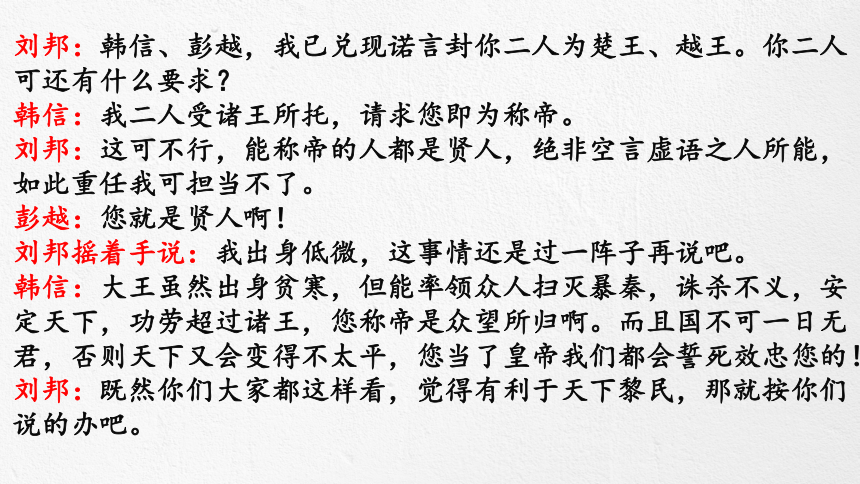 刘邦：韩信、彭越，我已兑现诺言封你二人为楚王、越王。你二人
可还有什么要求？
韩信：我二人受诸王所托，请求您即为称帝。
刘邦：这可不行，能称帝的人都是贤人，绝非空言虚语之人所能，
如此重任我可担当不了。
彭越：您就是贤人啊！
刘邦摇着手说：我出身低微，这事情还是过一阵子再说吧。
韩信：大王虽然出身贫寒，但能率领众人扫灭暴秦，诛杀不义，安
定天下，功劳超过诸王，您称帝是众望所归啊。而且国不可一日无
君，否则天下又会变得不太平，您当了皇帝我们都会誓死效忠您的！
刘邦：既然你们大家都这样看，觉得有利于天下黎民，那就按你们
说的办吧。